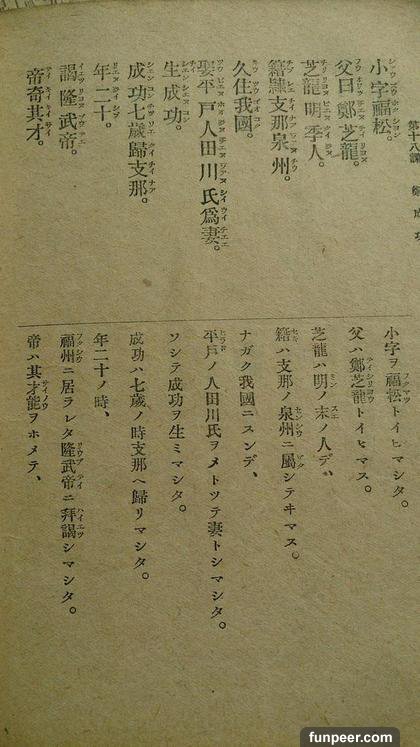 第十八課 鄭成功
小字福松。
父曰鄭芝龍。
芝龍明季人。
籍隸支那泉州。
久住我國。
娶平戶人田川氏爲妻。
生成功。
成功七歲歸支那。
年二十。
謁隆武帝。
帝奇其才。
小字ヲ福松トイヒマシタ。
父ハ鄭芝龍トイヒマス。
芝龍ハ明ノ末ノ人デ、
籍ハ支那ノ泉州ニ屬シテヰマス。
ナガク我國ニスンデ、
平戶ノ人田川氏ヲメトツテ妻トシマシタ。
ソシテ成功ヲ生ミマシタ。
成功ハ七歲ノ時支那ヘ歸リマシタ。
年二十ノ時、
福州ニ居ラレタ隆武帝ニ拜謁シマシタ。
帝ハ其才能ヲホメテ、
funpeer.com